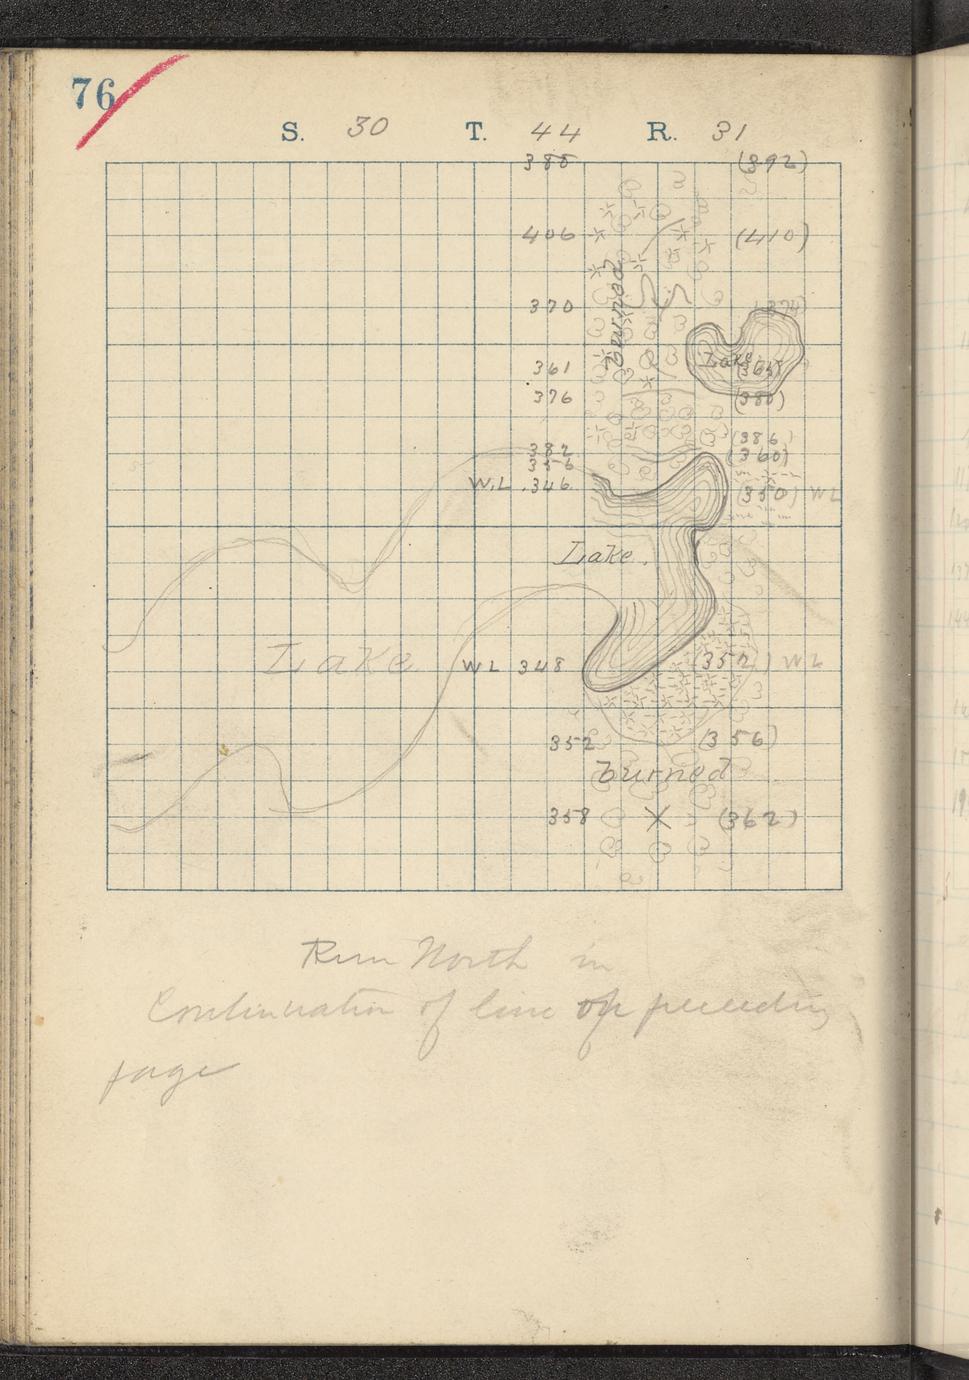 76
S. 30 T. 44 R. 31
385 (392)
406 (410)
burned
370 (374)
Lake
361 (365)
376 (380)
382 (386)
356 (360)
W.L. 346 (350) WL
Lake.
Lake WL 348 (352) WL
352 (356)
burned
358 X (362)
Run North in
Continuation of line of preceding
page